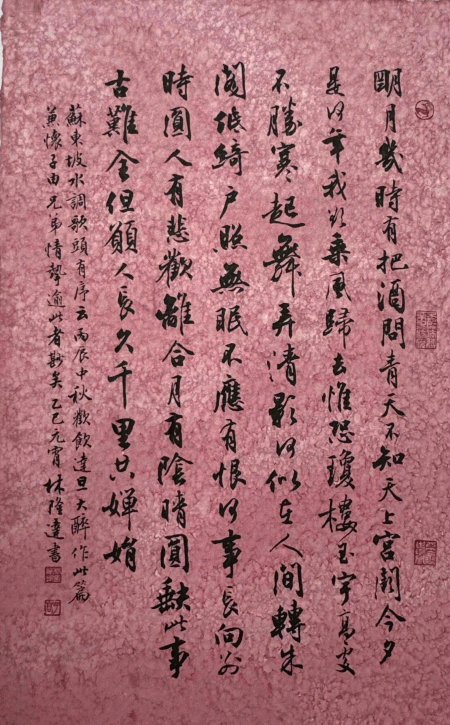 明月幾時有把酒問青天不知天上宮闕今夕
是何年我欲乘風歸去惟恐瓊樓玉宇高處
不勝寒起舞弄清影何似在人間轉朱
閣低綺戶照無眠不應有恨何事長向別
時圓人有悲歡離合月有陰晴圓缺此事
古難全但願人長久千里共嬋娟
蘇東坡水調歌頭有序云丙辰中秋歡飲達旦大醉作此篇
兼懷子由兄弟情摯逾此者尠矣乙巳元宵林隆達書